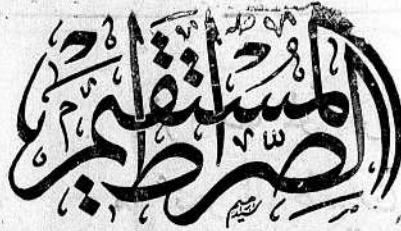 الصِّرَاطَ المُسْتَقِيْمَ